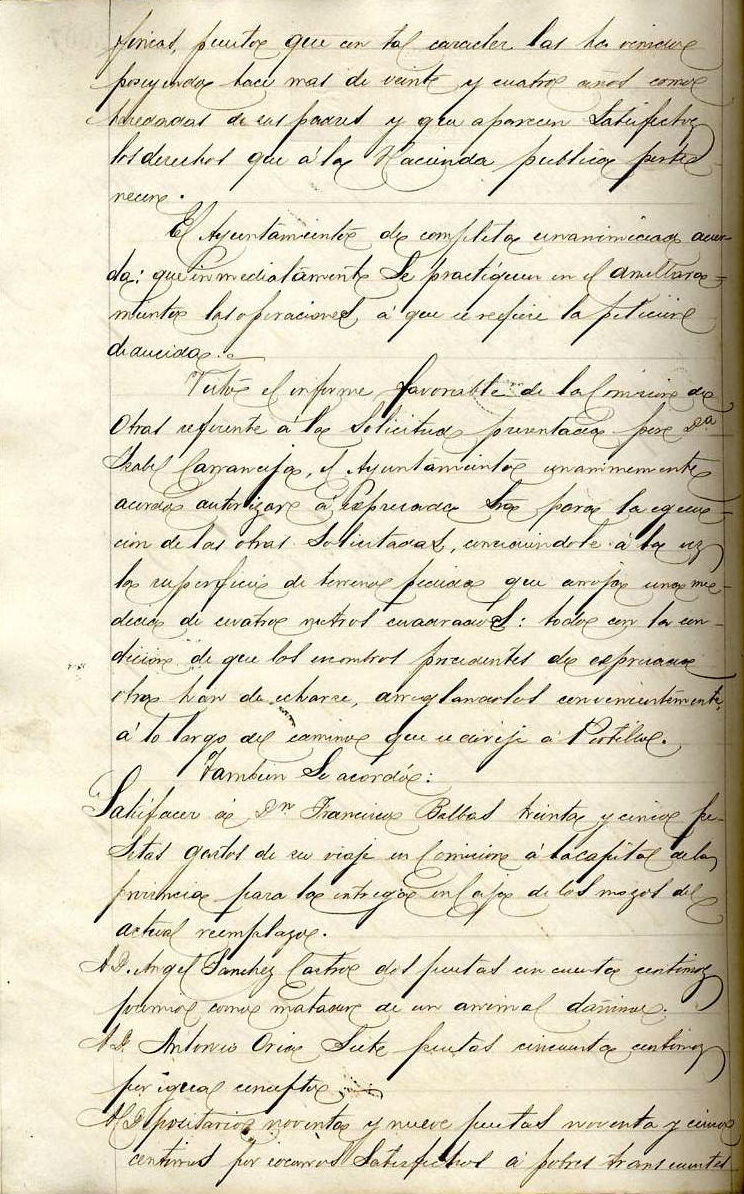 fincas, puestos que con tal caracter las ha venido
poseyendo hace mas de veinte y cuatro años como
heredadas de sus padres y que aparecen satisfechos
los derechos que á la Hacienda publica perte-
necen.
El Ayuntamiento de completa unanimidad acuer-
da: que inmediatamente se practiquen en el amillara-
miento las operaciones, á que se refiere la peticion
deducida.
Visto el informe favorable de la Comision de
Obras referente á la Solicitud presentada por Dª
Isabel Carranceja, el Ayuntamiento unanimemente
acordó autorizar á expresada Sra para la ejecu-
cion de las obras solicitadas, concediendole á la vez
la superficie de terreno pedida que arroja una me-
dida de cuatro metros cuadrados: todo con la con-
dicion de que los escombros procedentes de expresada
obra han de echarse, arreglandolos convenientemente,
á lo largo del camino que se dirije á Portillo.
Tambien se acordó:
Satisfacer á Dn Francisco Balbas treinta y cinco pe-
setas gastos de su viaje en Comision á la capital de la
provincia para la entrega en Caja de los mozos del
actual reemplazo.
A D. Angel Sanchez Castro dos pesetas cincuenta centimos
premio como matador de un animal dañino.
A D. Antonio Oria siete pesetas cincuenta centimos
por igual concepto
Al Depositario noventa y nueve pesetas noventa y cinco
centimos por socorros satisfechos á pobres transeuntes